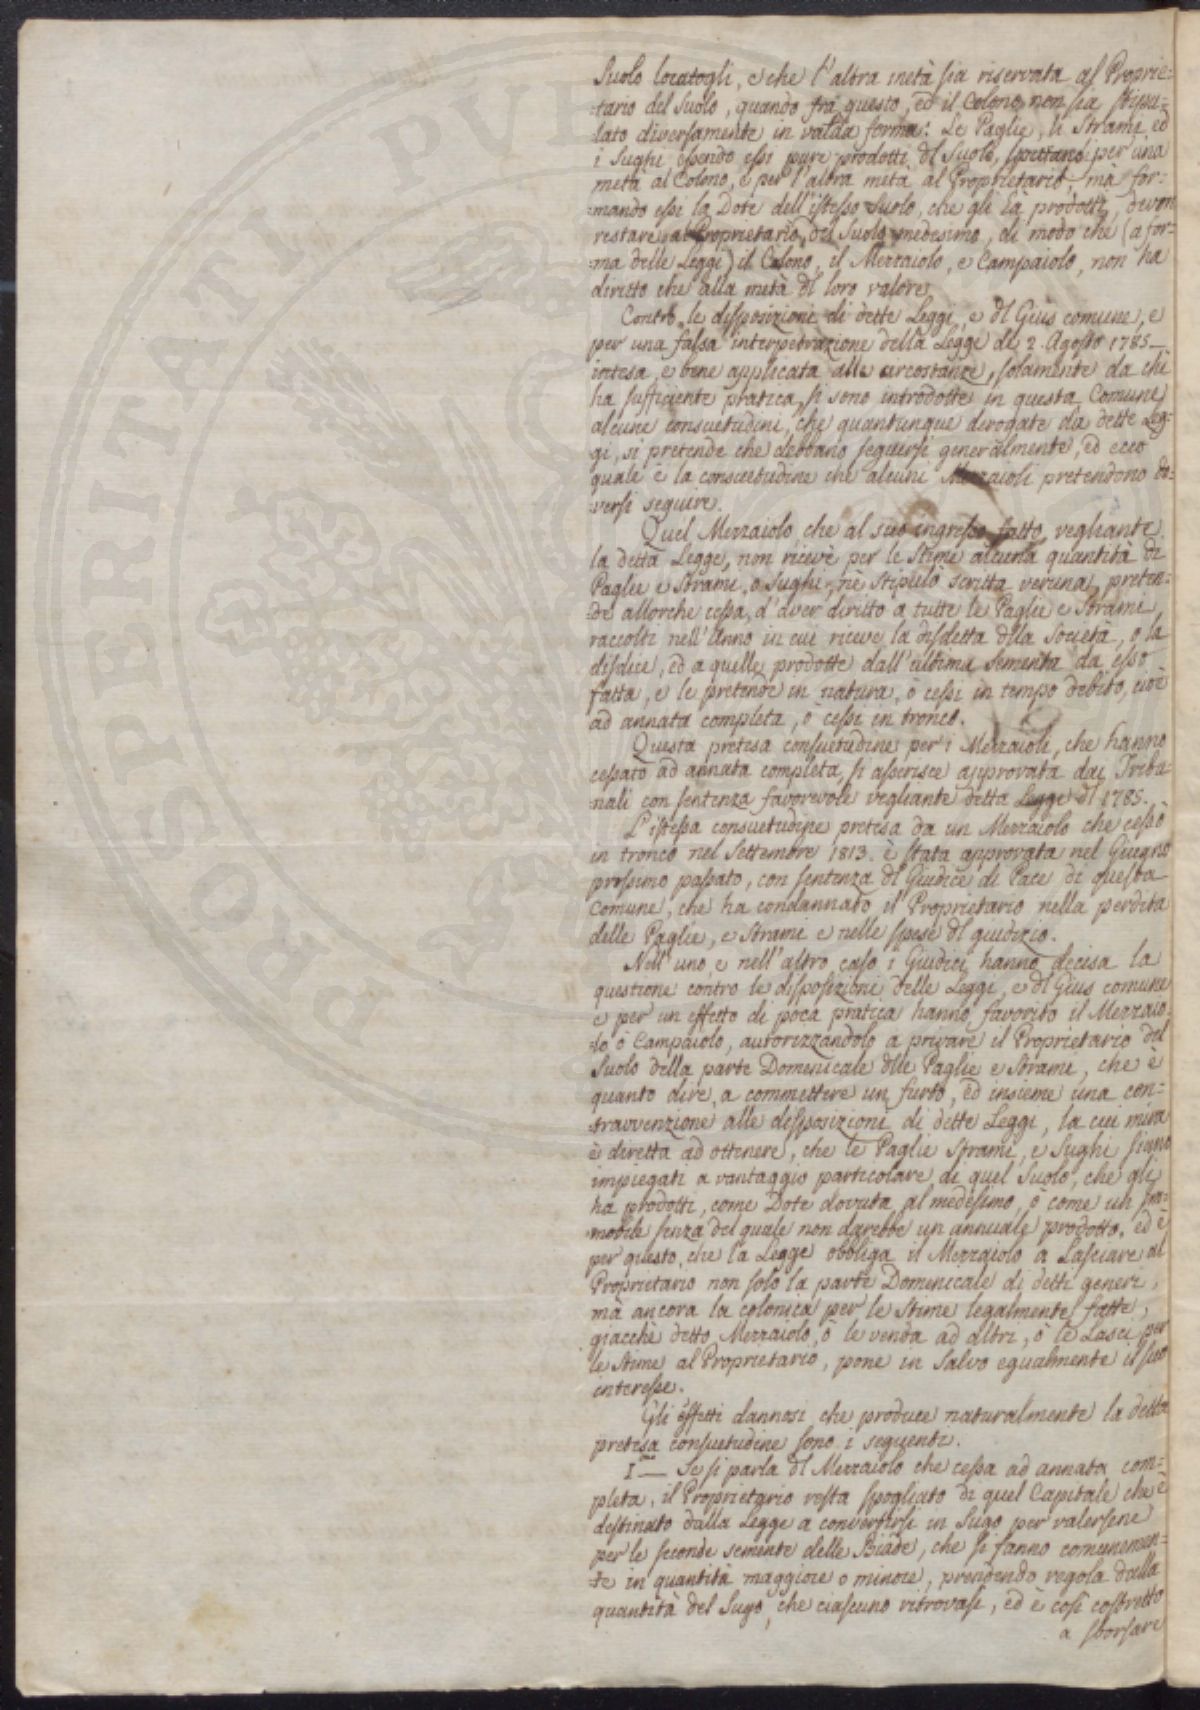 Suolo locatogli, e che l'altra metà sia riservata al Proprie=
=tario del Suolo, quando frà questo, ed il Colono non sia stipu=
=lato diversamente in valida forma: Le Paglie, li Strami, ed
i Sughi essendo essi pure prodotti dl Suolo, spettano per una
metà al Colono, e per l'altra metà al Proprietario, mà for=
=mando essi la Dote dell'istesso Suolo, che gli hà prodotti, devon
restare al Proprietario del Suolo medesimo, di modo che (a for=
=ma delle Leggi) il Colono, il Mezzaiolo, e Campaiolo, non ha
diritto che alla metà dl loro valore.
Contro le disposizioni di dette Leggi, e dl Gius comune, e
per una falsa interpetrazione della Legge de 2. Agosto 1785_
intesa, e bene applicata alle circostanze, solamente da chi
ha sufficiente pratica, si sono introdotte in questa Comune
alcune consuetudini, che quantunque derogate da dette Leg=
gi, si pretende che debbano seguirsi generalmente, ed ecco
quale è la consuetudine che alcuni Mezzaioli pretendono do=
=versi seguire.
Quel Mezzaiolo che al suo ingresso fatto vegliante
la detta Legge, non ricevè per le Stime alcuna quantità di
Paglie e Strami, o Sughi, nè stipulò scritta veruna, preten=
=de allorche cessa, d'aver diritto a tutte le Paglie e Strami,
raccolti nell'Anno in cui riceve la disdetta dlla Società, o la
disdice, ed a quelle prodotte dall'ultima Sementa da esso
fatta, e le pretende in natura, ò cessi in tempo debito, cioè
ad annata completa, ò cessi in tronco.
Questa pretesa consuetudine per i Mezzaioli, che hanno
cessato ad annata completa, si asserisce approvata dai Tribu=
=nali con sentenza favorevole vegliante detta Legge dl 1785.
L'istessa consuetudine pretesa da un Mezzaiolo che cessò
in tronco nel Settembre 1813. è stata approvata nel Giugno
prossimo passato, con sentenza dl Giudice di Pace di questa
Comune, che ha condannato il Proprietario nella perdita
delle Paglie, e Strami e nelle spese dl giudizio.
Nell'uno, e nell'altro caso i Giudici hanno decisa la
questione contro le disposizioni delle Leggi, e dl Gius comune
e per un effetto di poca pratica hanno favorito il Mezzaio=
=lo ò Campaiolo, autorizzandolo a privare il Proprietario del
Suolo della parte Domenicale dlle Paglie e Strami, che è
quanto dire, a commettere un furto, ed insieme una con=
=travvenzione alle disposizioni di dette Leggi, la cui mira
è diretta ad ottenere, che le Paglie Strami, e Sughi siano
impiegati a vantaggio particolare di quel Suolo, che gli
ha prodotti, come Dote dovuta al medesimo, ò come un Im=
=mobile senza del quale non darebbe un annuale prodotto, ed è
per questo, che la Legge obbliga il Mezzaiolo a Lasciare al
Proprietario non solo la parte Domenicale di detti generi,
mà ancora la colonica per le Stime legalmente fatte,
giacchè detto Mezzaiolo, ò le venda ad altri, ò le Lasci per
le Stime al Proprietario, pone in Salvo egualmente il suo
interesse.
Gli effetti dannosi che produce naturalmente la detta
pretesa consuetudine sono i seguenti.
1.mo_ Se si parla dl Mezzaiolo che cessa ad annata com=
=pleta, il Proprietario resta spogliato di quel Capitale che è
destinato dalla Legge a convertirsi in Sugo per valersene
per le seconde semente delle Biade, che si fanno comunemen=
=te in quantità maggiore o minore, prendendo regola dalla
quantità del Sugo, che ciascuno ritrovasi, ed è così costretto
a sborsare
PROSPERITATI PUB